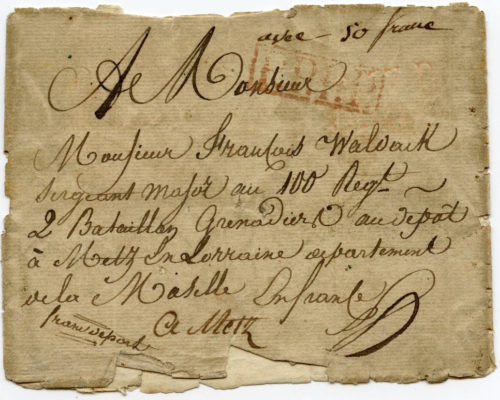 avec - 50 franc
A Monsieur
P.P.P.P.
Monsieur François Waldack
sergeant major au 100 Regt
2 Bataillon Grenadiers au depôt
à Metz En Lorraine departement
de la Moselle En france
franc déport
A Metz